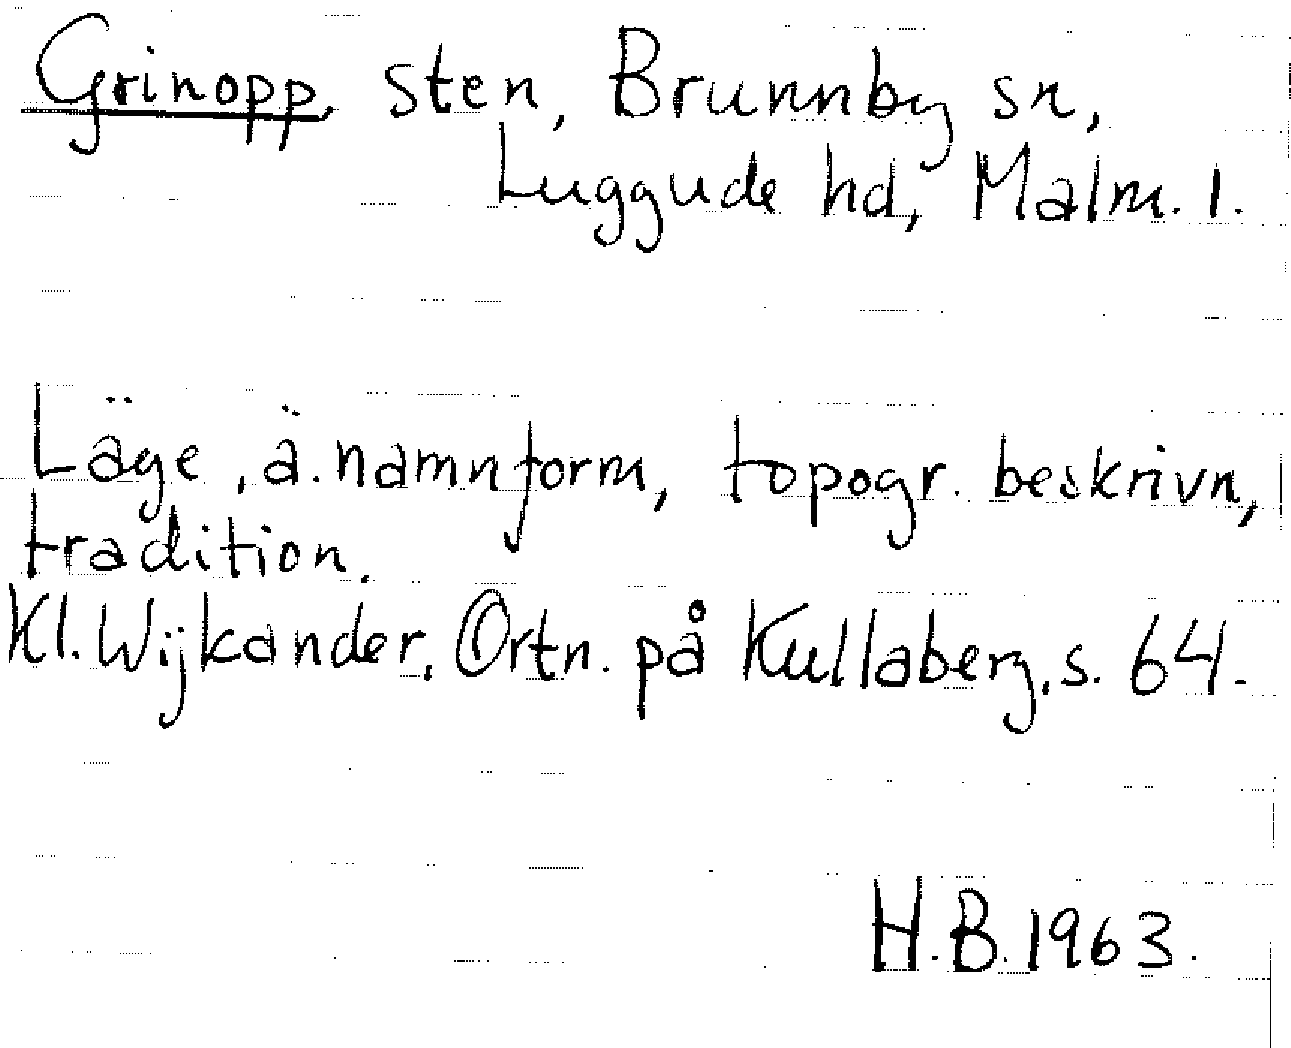 Grinopp, sten, Brunnby sn,
Luggude hd, Malm. l.
Läge, ä. namnform, topogr. beskrivn,
tradition.
Kl. Wijkander, Ortn. på Kullaberg, s. 64.
H.B. 1963.